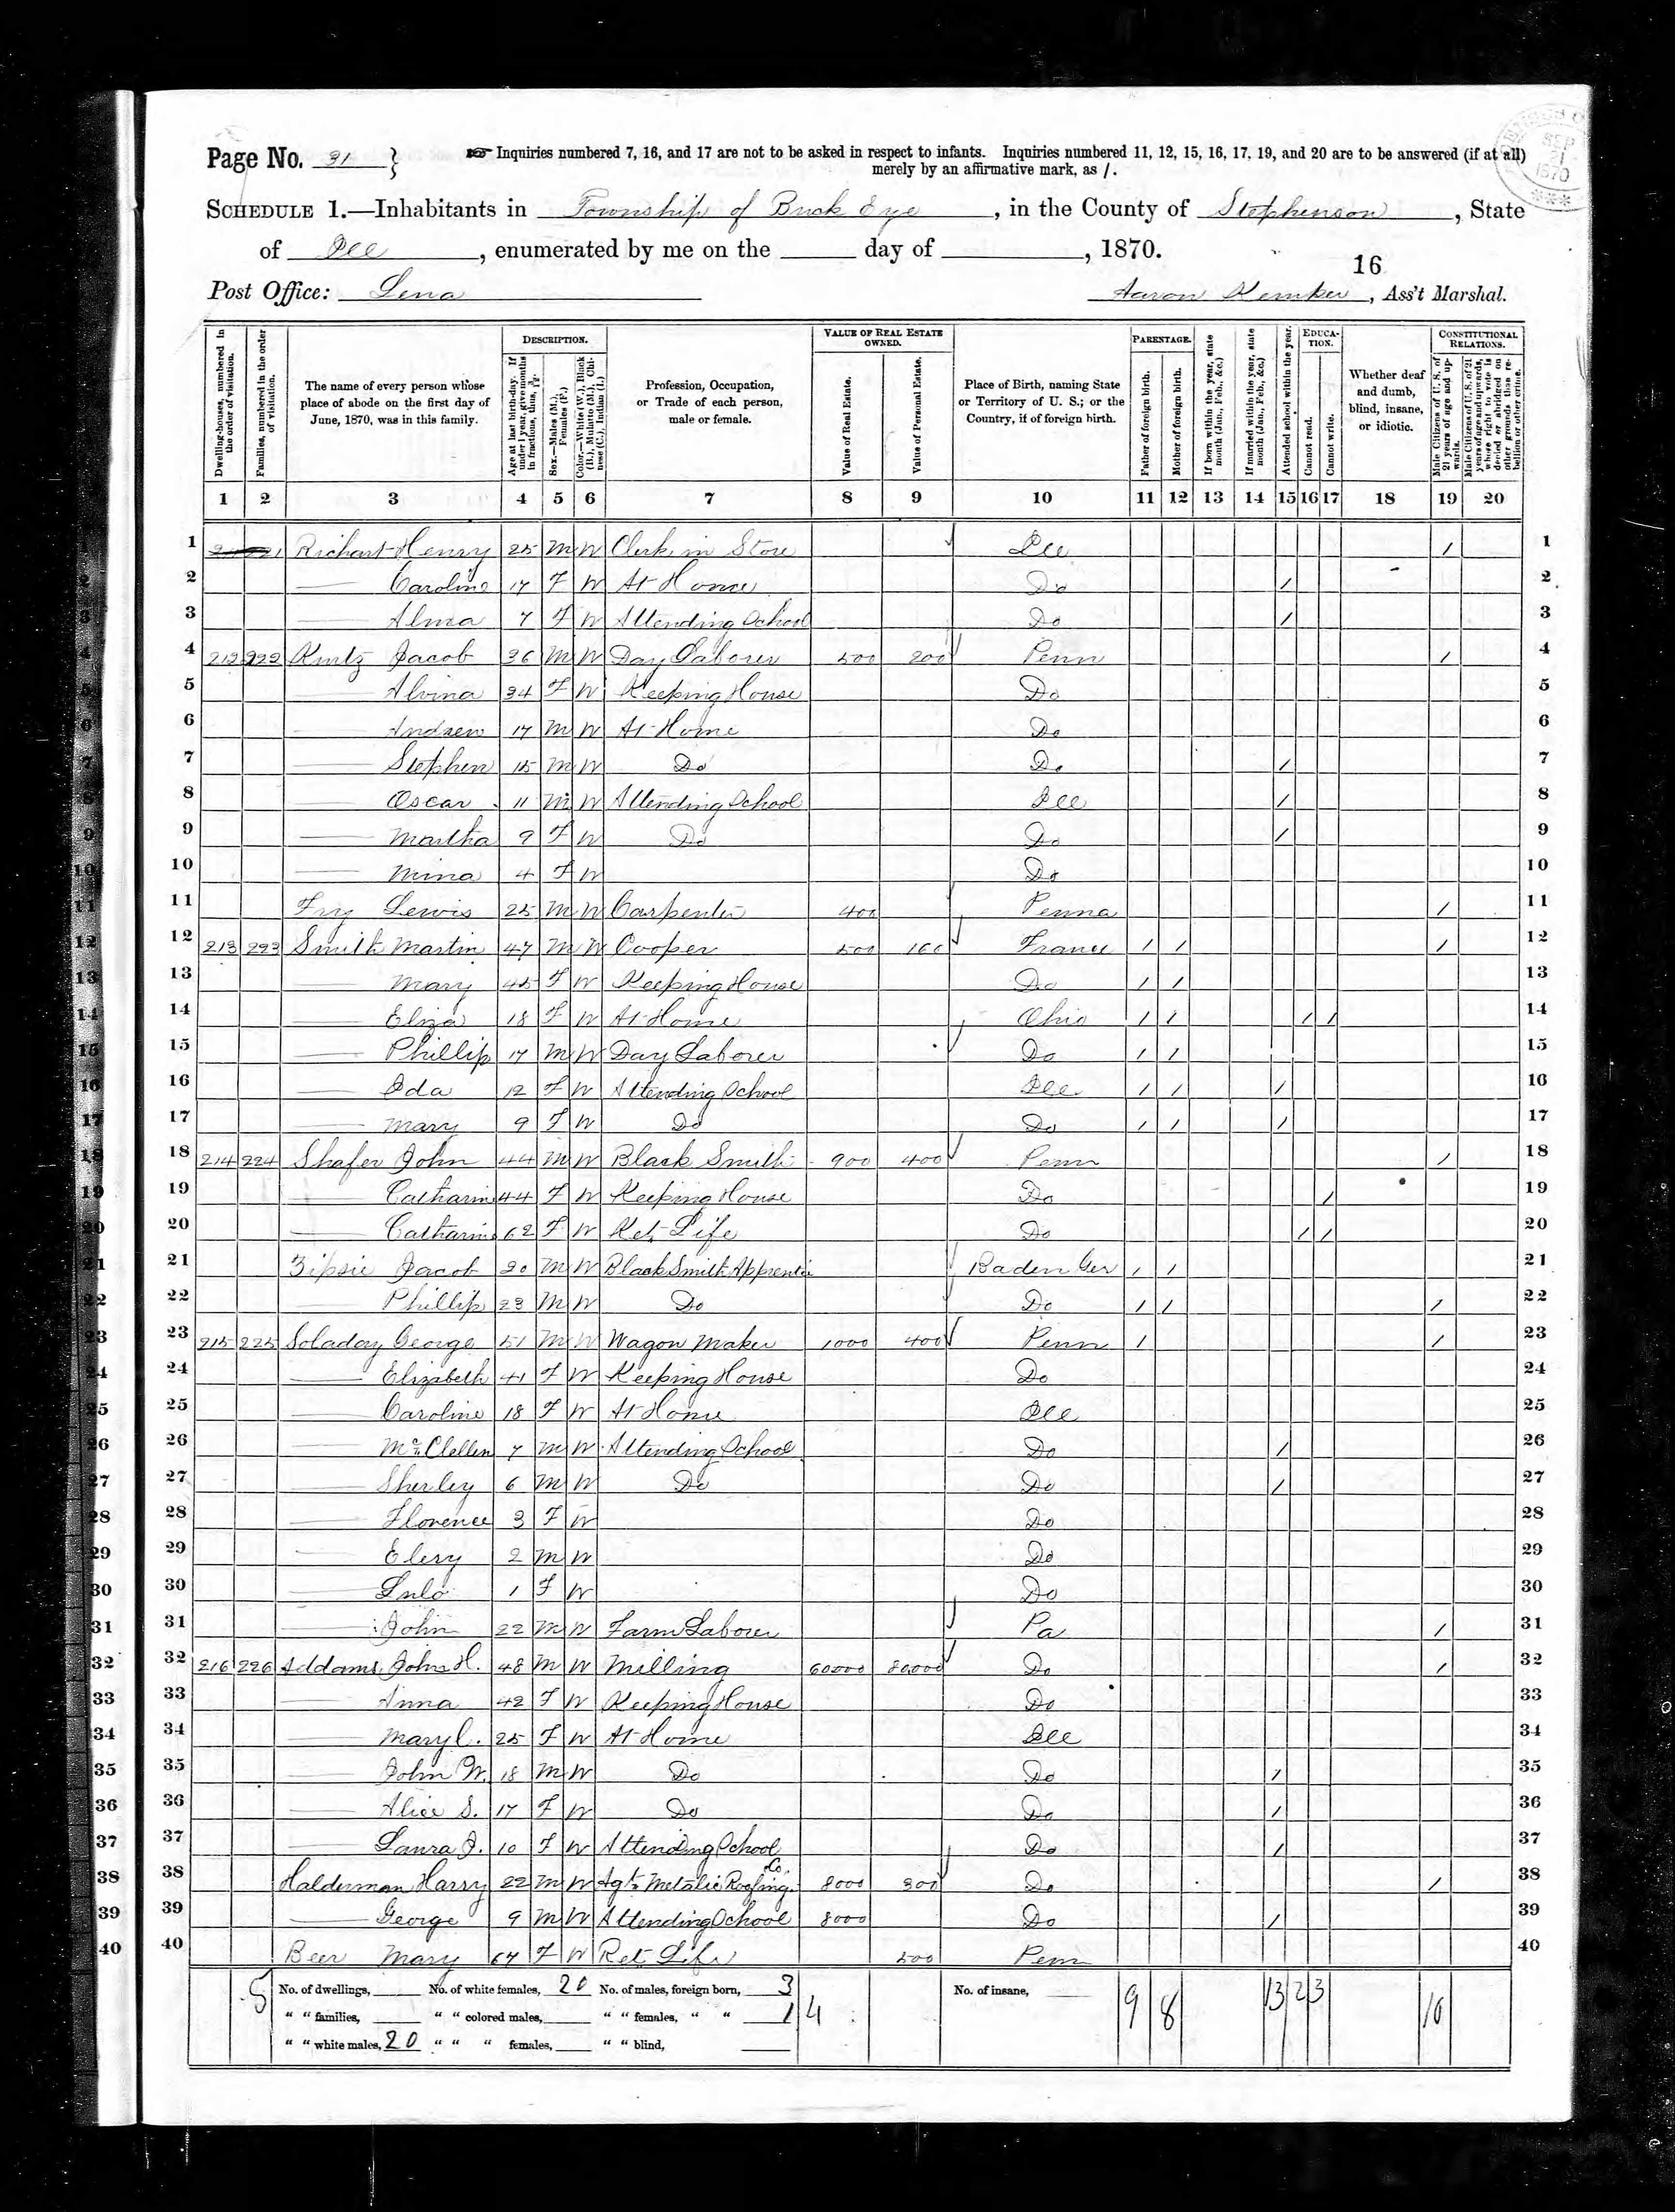 Page No. 31 } ☞ Inquiries numbered 7, 16, and 17 are not to be asked in respect to infants. Inquiries numbered 11, 12, 15, 16, 17, 19, and 20 are to be answered (if at all)
merely by an affirmative mark, as /.
SCHEDULE 1.—Inhabitants in Township of Buck Eye, in the County of Stephenson, State
of Ill, enumerated by me on the ___ day of ___, 1870.
16
Post Office: Lena Aaron Kemper, Ass't Marshal.
SEP 21 1870
Dwelling-houses, numbered in the order of visitation.
Families, numbered in the order of visitation.
The name of every person whose place of abode on the first day of June, 1870, was in this family.
DESCRIPTION.
Age at last birth-day. If under 1 year, give months in fractions, thus, 3/12.
Sex.—Males (M.), Females (F.)
Color.—White (W.), Black (B.), Mulatto (M.), Chinese (C.), Indian (I.)
Profession, Occupation, or Trade of each person, male or female.
VALUE OF REAL ESTATE OWNED.
Value of Real Estate.
Value of Personal Estate.
Place of Birth, naming State or Territory of U. S.; or the Country, if of foreign birth.
PARENTAGE.
Father of foreign birth.
Mother of foreign birth.
If born within the year, state month (Jan., Feb., &c.)
If married within the year, state month (Jan., Feb., &c.)
Attended school within the year.
EDUCATION.
Cannot read.
Cannot write.
Whether deaf and dumb, blind, insane, or idiotic.
CONSTITUTIONAL RELATIONS.
Male Citizens of U. S. of 21 years of age and upwards.
Male Citizens of U. S. of 21 years of age and upwards, whose right to vote is denied or abridged on other grounds than rebellion or other crime.
1 2 3 4 5 6 7 8 9 10 11 12 13 14 15 16 17 18 19 20
1 Richart Henry 25 M W Clerk in Store Ill / 1
2 — Caroline 17 F W At Home Do / 2
3 — Alma 7 F W Attending School Do / 3
4 212 222 Kuntz Jacob 36 M W Day Laborer 500 200 Penn / 4
5 — Alvina 34 F W Keeping House Do 5
6 — Andrew 17 M W At Home Do 6
7 — Stephen 15 M W Do Do / 7
8 — Oscar 11 M W Attending School Ill / 8
9 — Martha 9 F W Do Do / 9
10 — Mina 4 F W Do 10
11 Fry Lewis 25 M W Carpenter 400 Penna / 11
12 213 223 Smith Martin 47 M W Cooper 500 160 France / / / 12
13 — Mary 45 F W Keeping House Do / / 13
14 — Eliza 18 F W At Home Ohio / / / / 14
15 — Phillip 17 M W Day Laborer Do / / 15
16 — Ida 12 F W Attending School Ill / / / 16
17 — Mary 9 F W Do Do / / / 17
18 214 224 Shafer John 44 M W Black Smith 900 400 Penn / 18
19 — Catharine 44 F W Keeping House Do / 19
20 — Catharine 62 F W Ret Life Do / / 20
21 Zipsie Jacob 20 M W Black Smith Apprentice Baden Ger / / 21
22 — Phillip 23 M W Do Do / / / 22
23 215 225 Soladay George 51 M W Wagon Maker 1000 400 Penn / / 23
24 — Elizabeth 41 F W Keeping House Do 24
25 — Caroline 18 F W At Home Ill 25
26 — McClellen 7 M W Attending School Do / 26
27 — Sherley 6 M W Do Do / 27
28 — Florence 3 F W Do 28
29 — Elery 2 M W Do 29
30 — Lulo 1 F W Do 30
31 — John 22 M W Farm Laborer Pa / 31
32 216 226 Addams John H. 48 M W Milling 60000 80000 Do / 32
33 — Anna 42 F W Keeping House Do 33
34 — Mary C. 25 F W At Home Ill 34
35 — John W. 18 M W Do Do / 35
36 — Alice S. 17 F W Do Do / 36
37 — Laura J. 10 F W Attending School Do / 37
38 Halderman Harry 22 M W Agt Metalic Roofing Co. 8000 300 Do / 38
39 — George 9 M W Attending School 8000 Do / 39
40 Beer Mary 67 F W Ret Life 500 Penn 40
5 No. of dwellings, ___ No. of white females, 20 No. of males, foreign born, 3 No. of insane, ___ 9 8 13 2 3 10
“ “ families, ___ “ “ colored males, ___ “ “ females, “ “ 1 4
“ “ white males, 20 “ “ “ females, ___ “ “ blind, ___